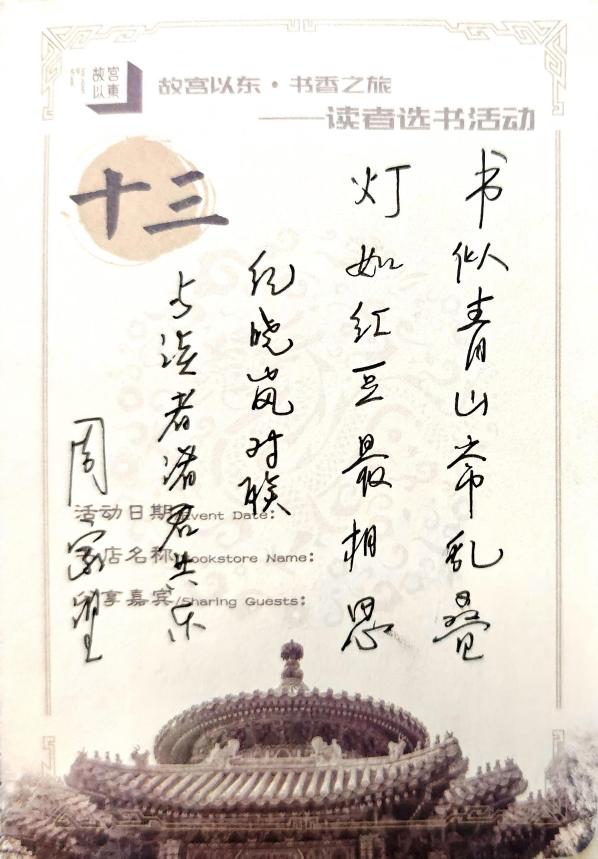 故宫
以東
故宫以东·书香之旅
——读者选书活动
十三
书似青山常乱叠
灯如红豆最相思
纪晓岚对联
与读者诸君共乐
周家望
活动日期/Event Date:
店名称/Bookstore Name:
享嘉宾/Sharing Guests: